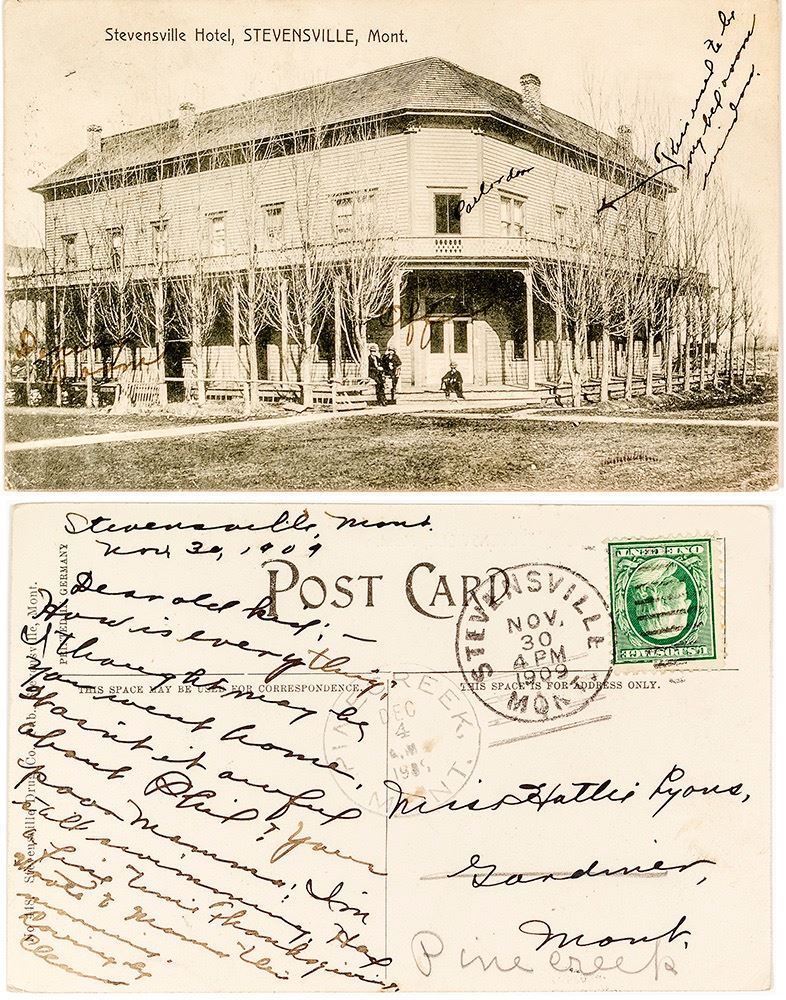 Stevensville Hotel, STEVENSVILLE, Mont.
This used to be
my bed room
window.
Parlor door
office
Dining
room
Stevensville, Mont.
Nov 30, 1909
POST CARD
Dear old kid; –
How is everything,
I thought maybe
you went home.
Wasn't it awful
about Phil? Your
poor Mamma! I'm
still swimming. Had
a fine time Thanksgiving.
Wrote to Mamma this
morning.
Lovingly
THIS SPACE MAY BE USED FOR CORRESPONDENCE.
THIS SPACE IS FOR ADDRESS ONLY.
PRINTED IN GERMANY
Stevensville Drug Co., Pub., Stevensville, Mont.
STEVENSVILLE
NOV.
30
4 PM
1909
MONT.
PINE CREEK,
DEC
4
A.M.
1909
MONT.
U.S. POSTAGE
ONE CENT
Miss Hattie Lyons,
Gardiner,
Mont.
Pine creek